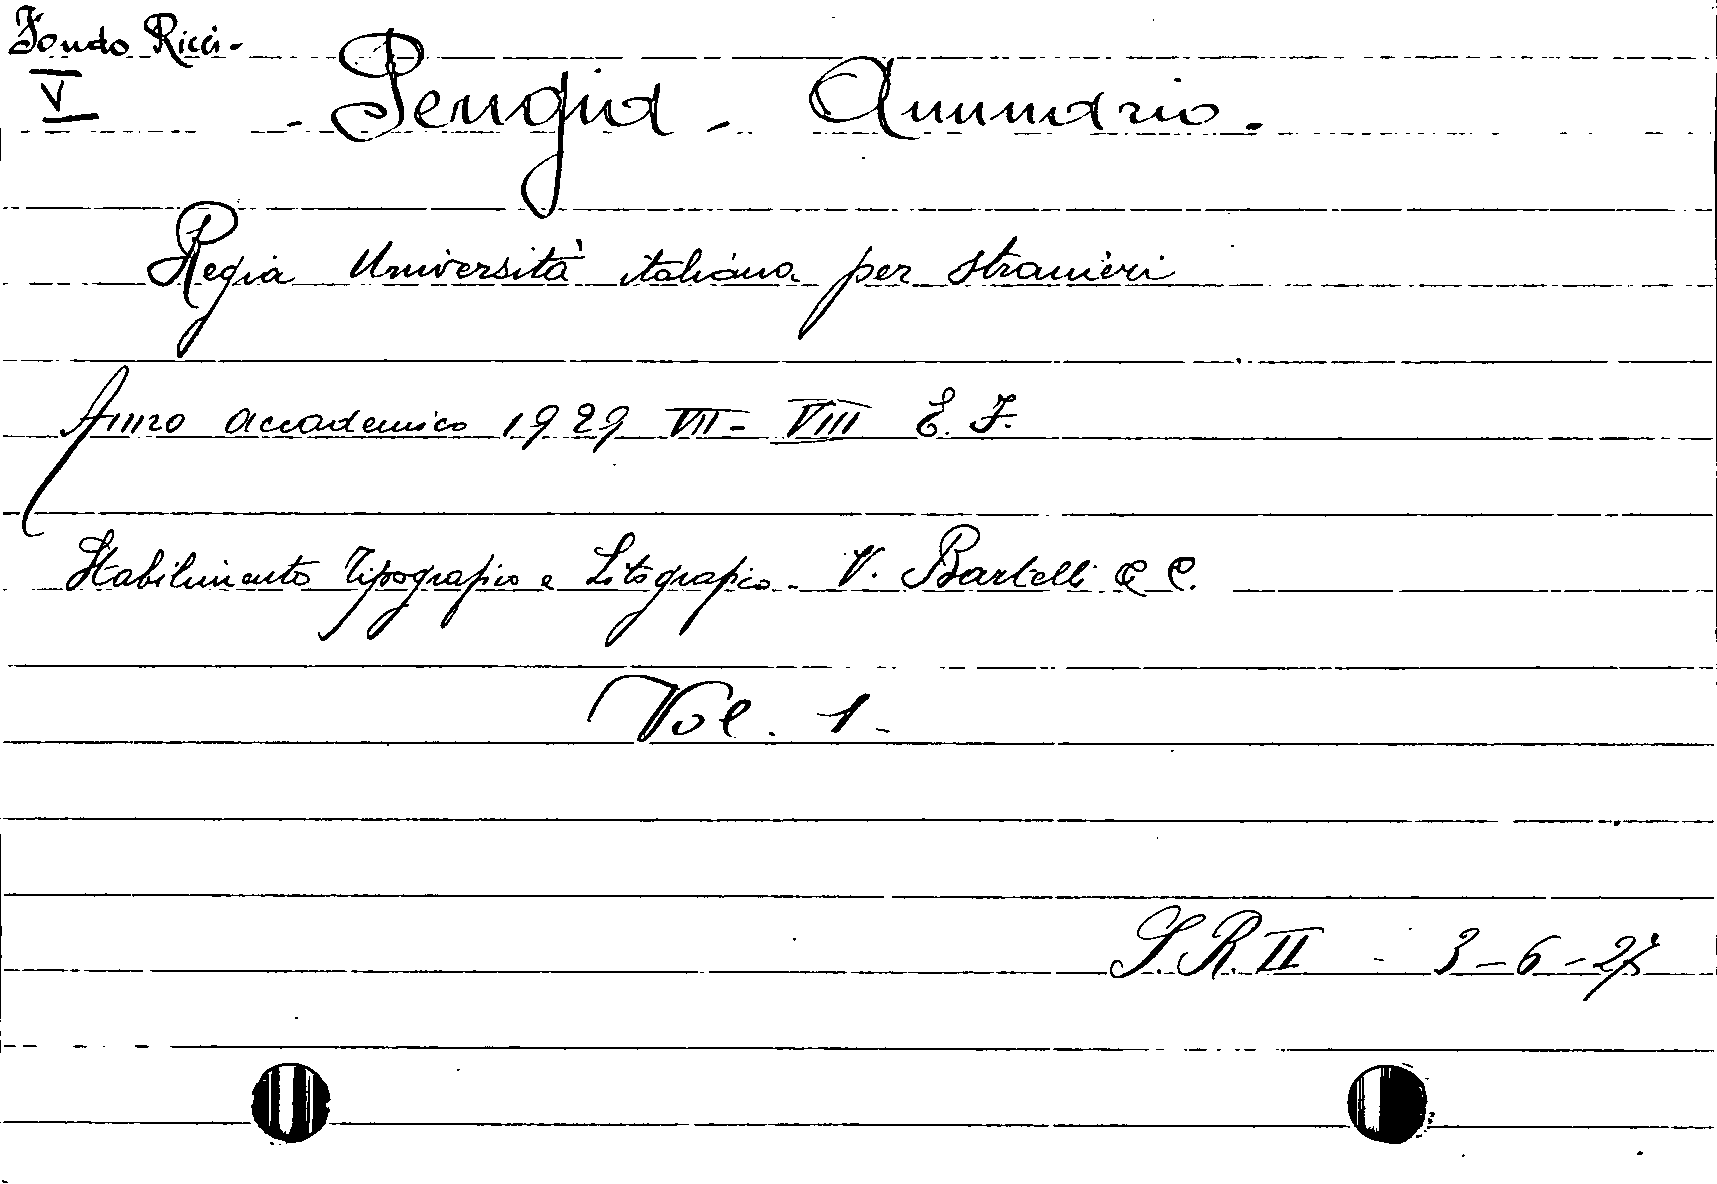 Fondo Ricci-
V - Perugia - Annuario.
Regia Università italiana per stranieri
Anno accademico 1929 VII - VIII E. F.
Stabilimento Tipografico e Litografico - V. Bartelli & C.
Vol. 1-
S. R. II - 3-6-27